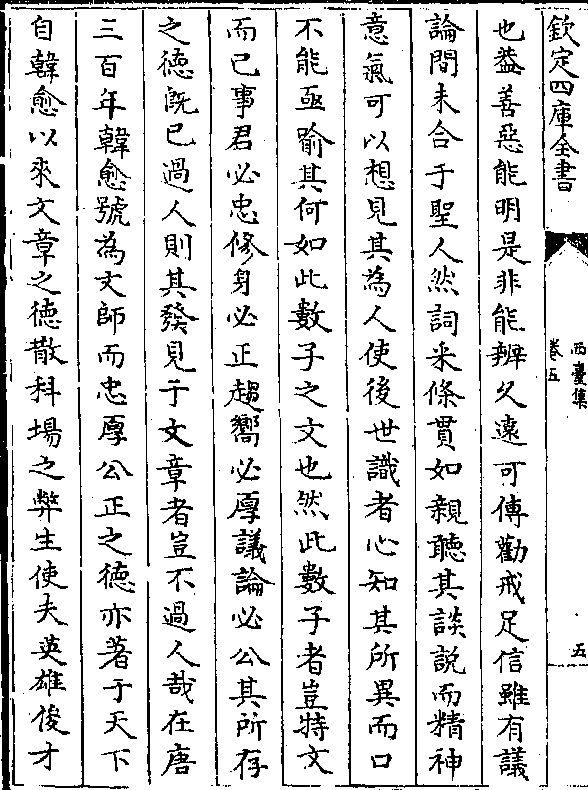 欽定四庫全書
西臺集
卷五
五
也葢善惡能明是非能辨久遠可傳勸戒足信雖有議
論間未合于聖人然詞采條貫如親聽其談説而精神
意氣可以想見其為人使後世識者心知其所異而口
不能亟喻其何如此數子之文也然此數子者豈特文
而已事君必忠修身必正趨嚮必厚議論必公其所存
之徳既已過人則其發見于文章者豈不過人哉在唐
三百年韓愈號為文師而忠厚公正之徳亦著于天下
自韓愈以來文章之徳散科場之弊生使夫英雄俊才